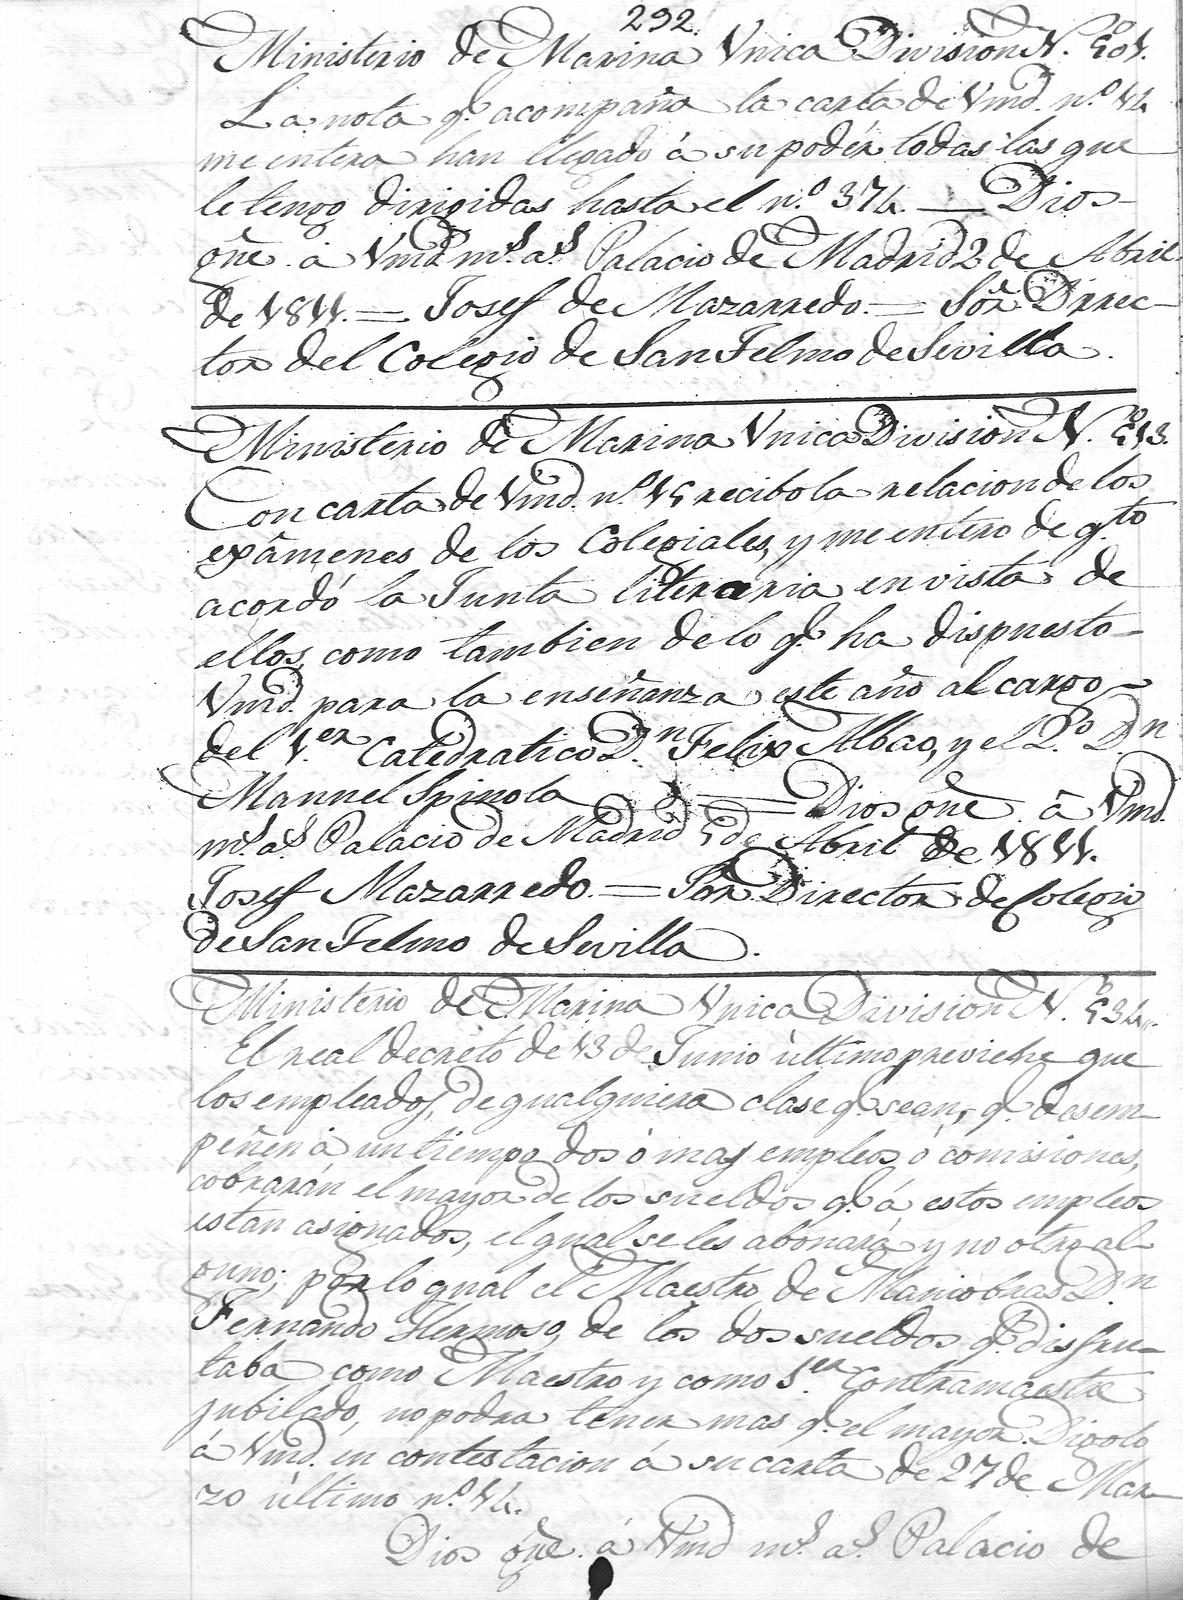 292.
Ministerio de Marina Vnica Division N.º 501.
La nota q.e acompaña la carta de Vmd. n.º 12
me entera han llegado á su poder todas las que
le tengo dirigidas hasta el n.º 374. — Dios
gũe. á Vmd. m.s a.s Palacio de Madrid 2 de Abril
de 1811. = Josef de Mazarredo. = Sõr. Direc-
tor del Colegio de San Telmo de Sevilla.
Ministerio de Marina Vnica Division N.º 513.
Con carta de Vmd. n.º 15 recibo la relacion de los
exâmenes de los Colegiales, y me entero de q.to
acordó la Junta literaria en vista de
ellos, como tambien de lo q.e ha dispuesto
Vmd. para la enseñanza este año al cargo
del 1.er Catedratico D.n Felix Albao, y el 2.º D.n
Manuel Spinola = Dios gũe. á Vmd.
m.s a.s Palacio de Madrid 5 de Abril de 1811.
Josef Mazarredo. = Sõr. Director de Colegio
de San Telmo de Sevilla.
Ministerio de Marina Vnica Division N.º 534.
El real decreto de 13 de Junio ùltimo previene que
los empleados, de qualquiera clase q.e sean, q.e desem-
peñen á un tiempo dos ó mas empleos ó comisiones,
cobrarán el mayor de los sueldos q.e á estos empleos
estan asignados, el qual se les abonará y no otro al-
guno; por lo qual el Maestro de Maniobras D.n
Fernando Hermoso, de los dos sueldos q.e disfru-
taba como Maestro y como 1.er Contramaestre
jubilado, no podra tener mas q.e el mayor. Digolo
á Vmd. en contestacion á su carta de 27 de Mar-
zo ùltimo n.º 14.
Dios gũe. á Vmd m.s a.s Palacio de